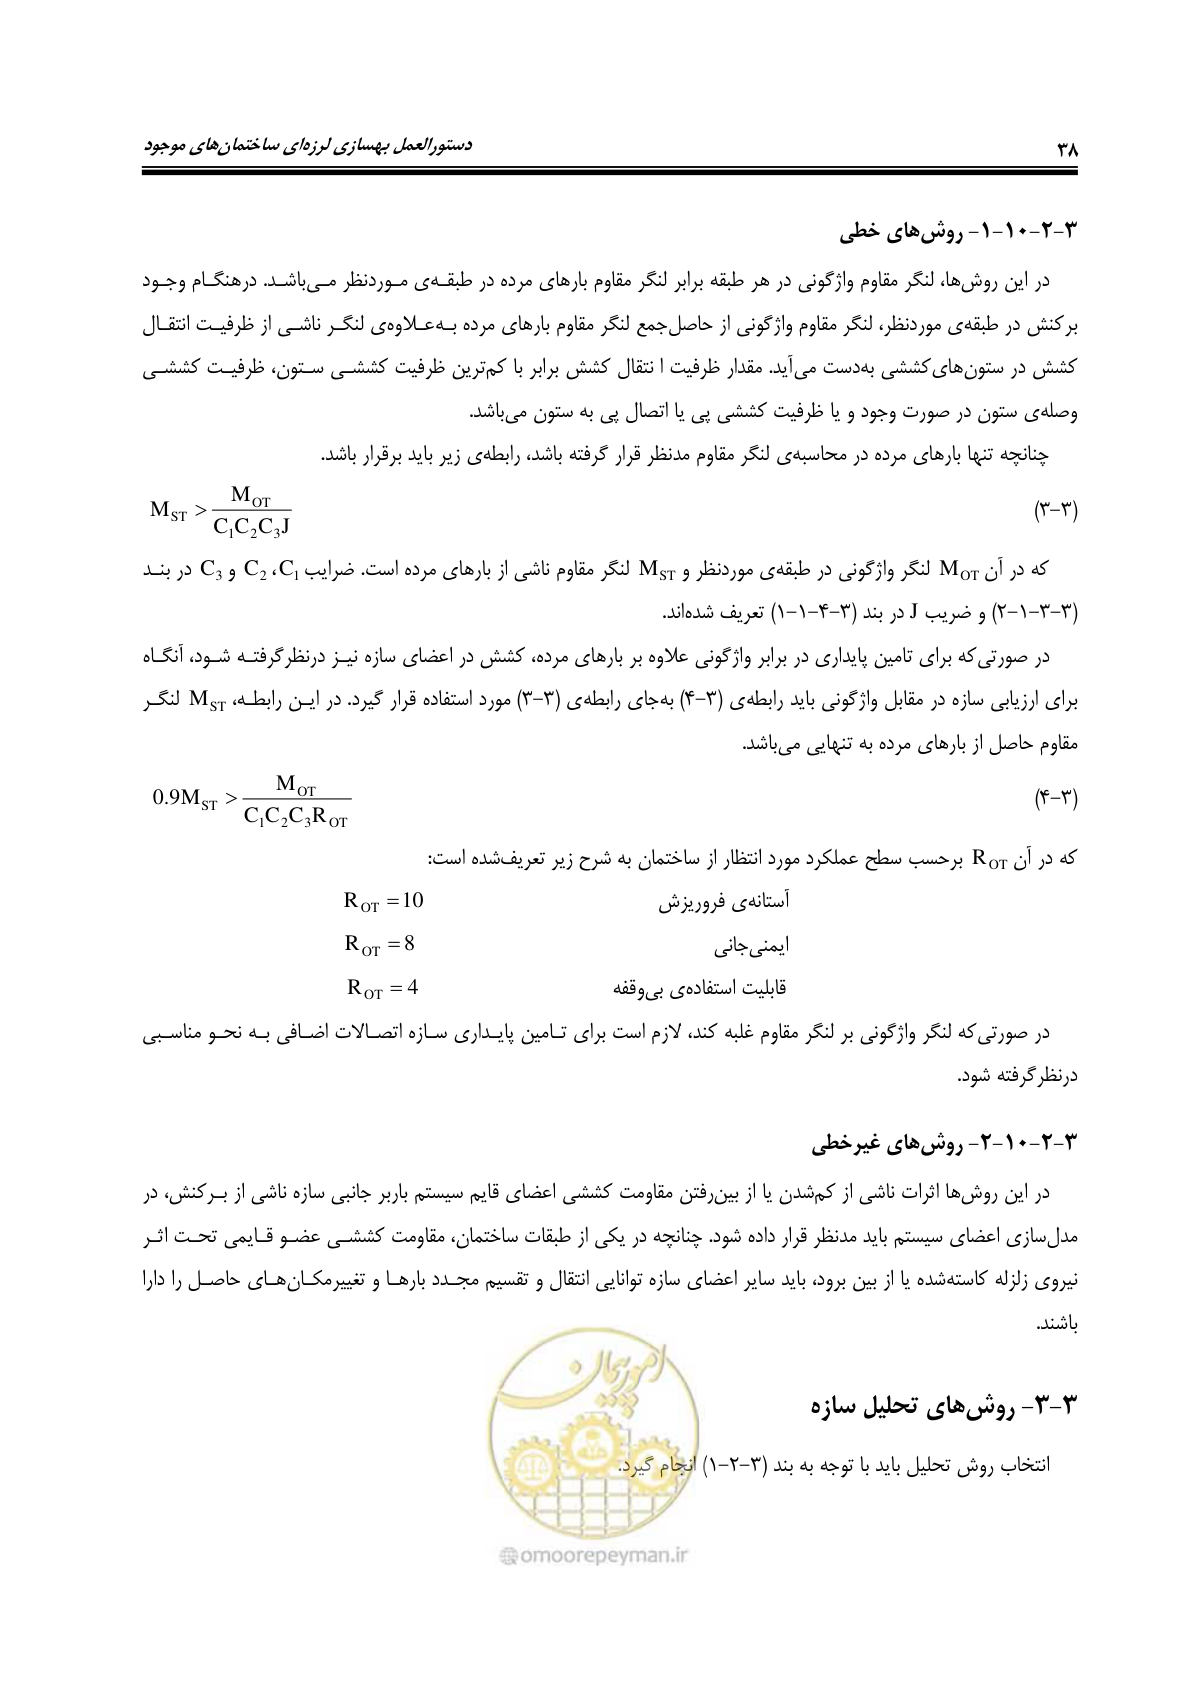 ۳۸ دستورالعمل بهسازی لرزه‌ای ساختمان‌های موجود
۳-۲-۱۰-۱- روش‌های خطی
در این روش‌ها، لنگر مقاوم واژگونی در هر طبقه برابر لنگر مقاوم بارهای مرده در طبقه‌ی موردنظر می‌باشد. درهنگام وجود
برکنش در طبقه‌ی موردنظر، لنگر مقاوم واژگونی از حاصل‌جمع لنگر مقاوم بارهای مرده به‌علاوه‌ی لنگر ناشی از ظرفیت انتقال
کشش در ستون‌های کششی به‌دست می‌آید. مقدار ظرفیت ا نتقال کشش برابر با کم‌ترین ظرفیت کششی ستون، ظرفیت کششی
وصله‌ی ستون در صورت وجود و یا ظرفیت کششی پی یا اتصال پی به ستون می‌باشد.
چنانچه تنها بارهای مرده در محاسبه‌ی لنگر مقاوم مدنظر قرار گرفته باشد، رابطه‌ی زیر باید برقرار باشد.
(۳-۳) M_ST > M_OT / C₁C₂C₃J
که در آن M_OT لنگر واژگونی در طبقه‌ی موردنظر و M_ST لنگر مقاوم ناشی از بارهای مرده است. ضرایب C₁، C₂ و C₃ در بند
(۳-۳-۱-۲) و ضریب J در بند (۳-۴-۱-۱) تعریف شده‌اند.
در صورتی‌که برای تامین پایداری در برابر واژگونی علاوه بر بارهای مرده، کشش در اعضای سازه نیز درنظرگرفته شود، آنگاه
برای ارزیابی سازه در مقابل واژگونی باید رابطه‌ی (۳-۴) به‌جای رابطه‌ی (۳-۳) مورد استفاده قرار گیرد. در این رابطه، M_ST لنگر
مقاوم حاصل از بارهای مرده به تنهایی می‌باشد.
(۳-۴) 0.9M_ST > M_OT / C₁C₂C₃R_OT
که در آن R_OT برحسب سطح عملکرد مورد انتظار از ساختمان به شرح زیر تعریف‌شده است:
آستانه‌ی فروریزش R_OT = 10
ایمنی‌جانی R_OT = 8
قابلیت استفاده‌ی بی‌وقفه R_OT = 4
در صورتی‌که لنگر واژگونی بر لنگر مقاوم غلبه کند، لازم است برای تامین پایداری سازه اتصالات اضافی به نحو مناسبی
درنظرگرفته شود.
۳-۲-۱۰-۲- روش‌های غیرخطی
در این روش‌ها اثرات ناشی از کم‌شدن یا از بین‌رفتن مقاومت کششی اعضای قایم سیستم باربر جانبی سازه ناشی از برکنش، در
مدل‌سازی اعضای سیستم باید مدنظر قرار داده شود. چنانچه در یکی از طبقات ساختمان، مقاومت کششی عضو قایمی تحت اثر
نیروی زلزله کاسته‌شده یا از بین برود، باید سایر اعضای سازه توانایی انتقال و تقسیم مجدد بارها و تغییرمکان‌های حاصل را دارا
باشند.
۳-۳- روش‌های تحلیل سازه
انتخاب روش تحلیل باید با توجه به بند (۳-۲-۱) انجام گیرد.
امور پیمان
@omoorepeyman.ir